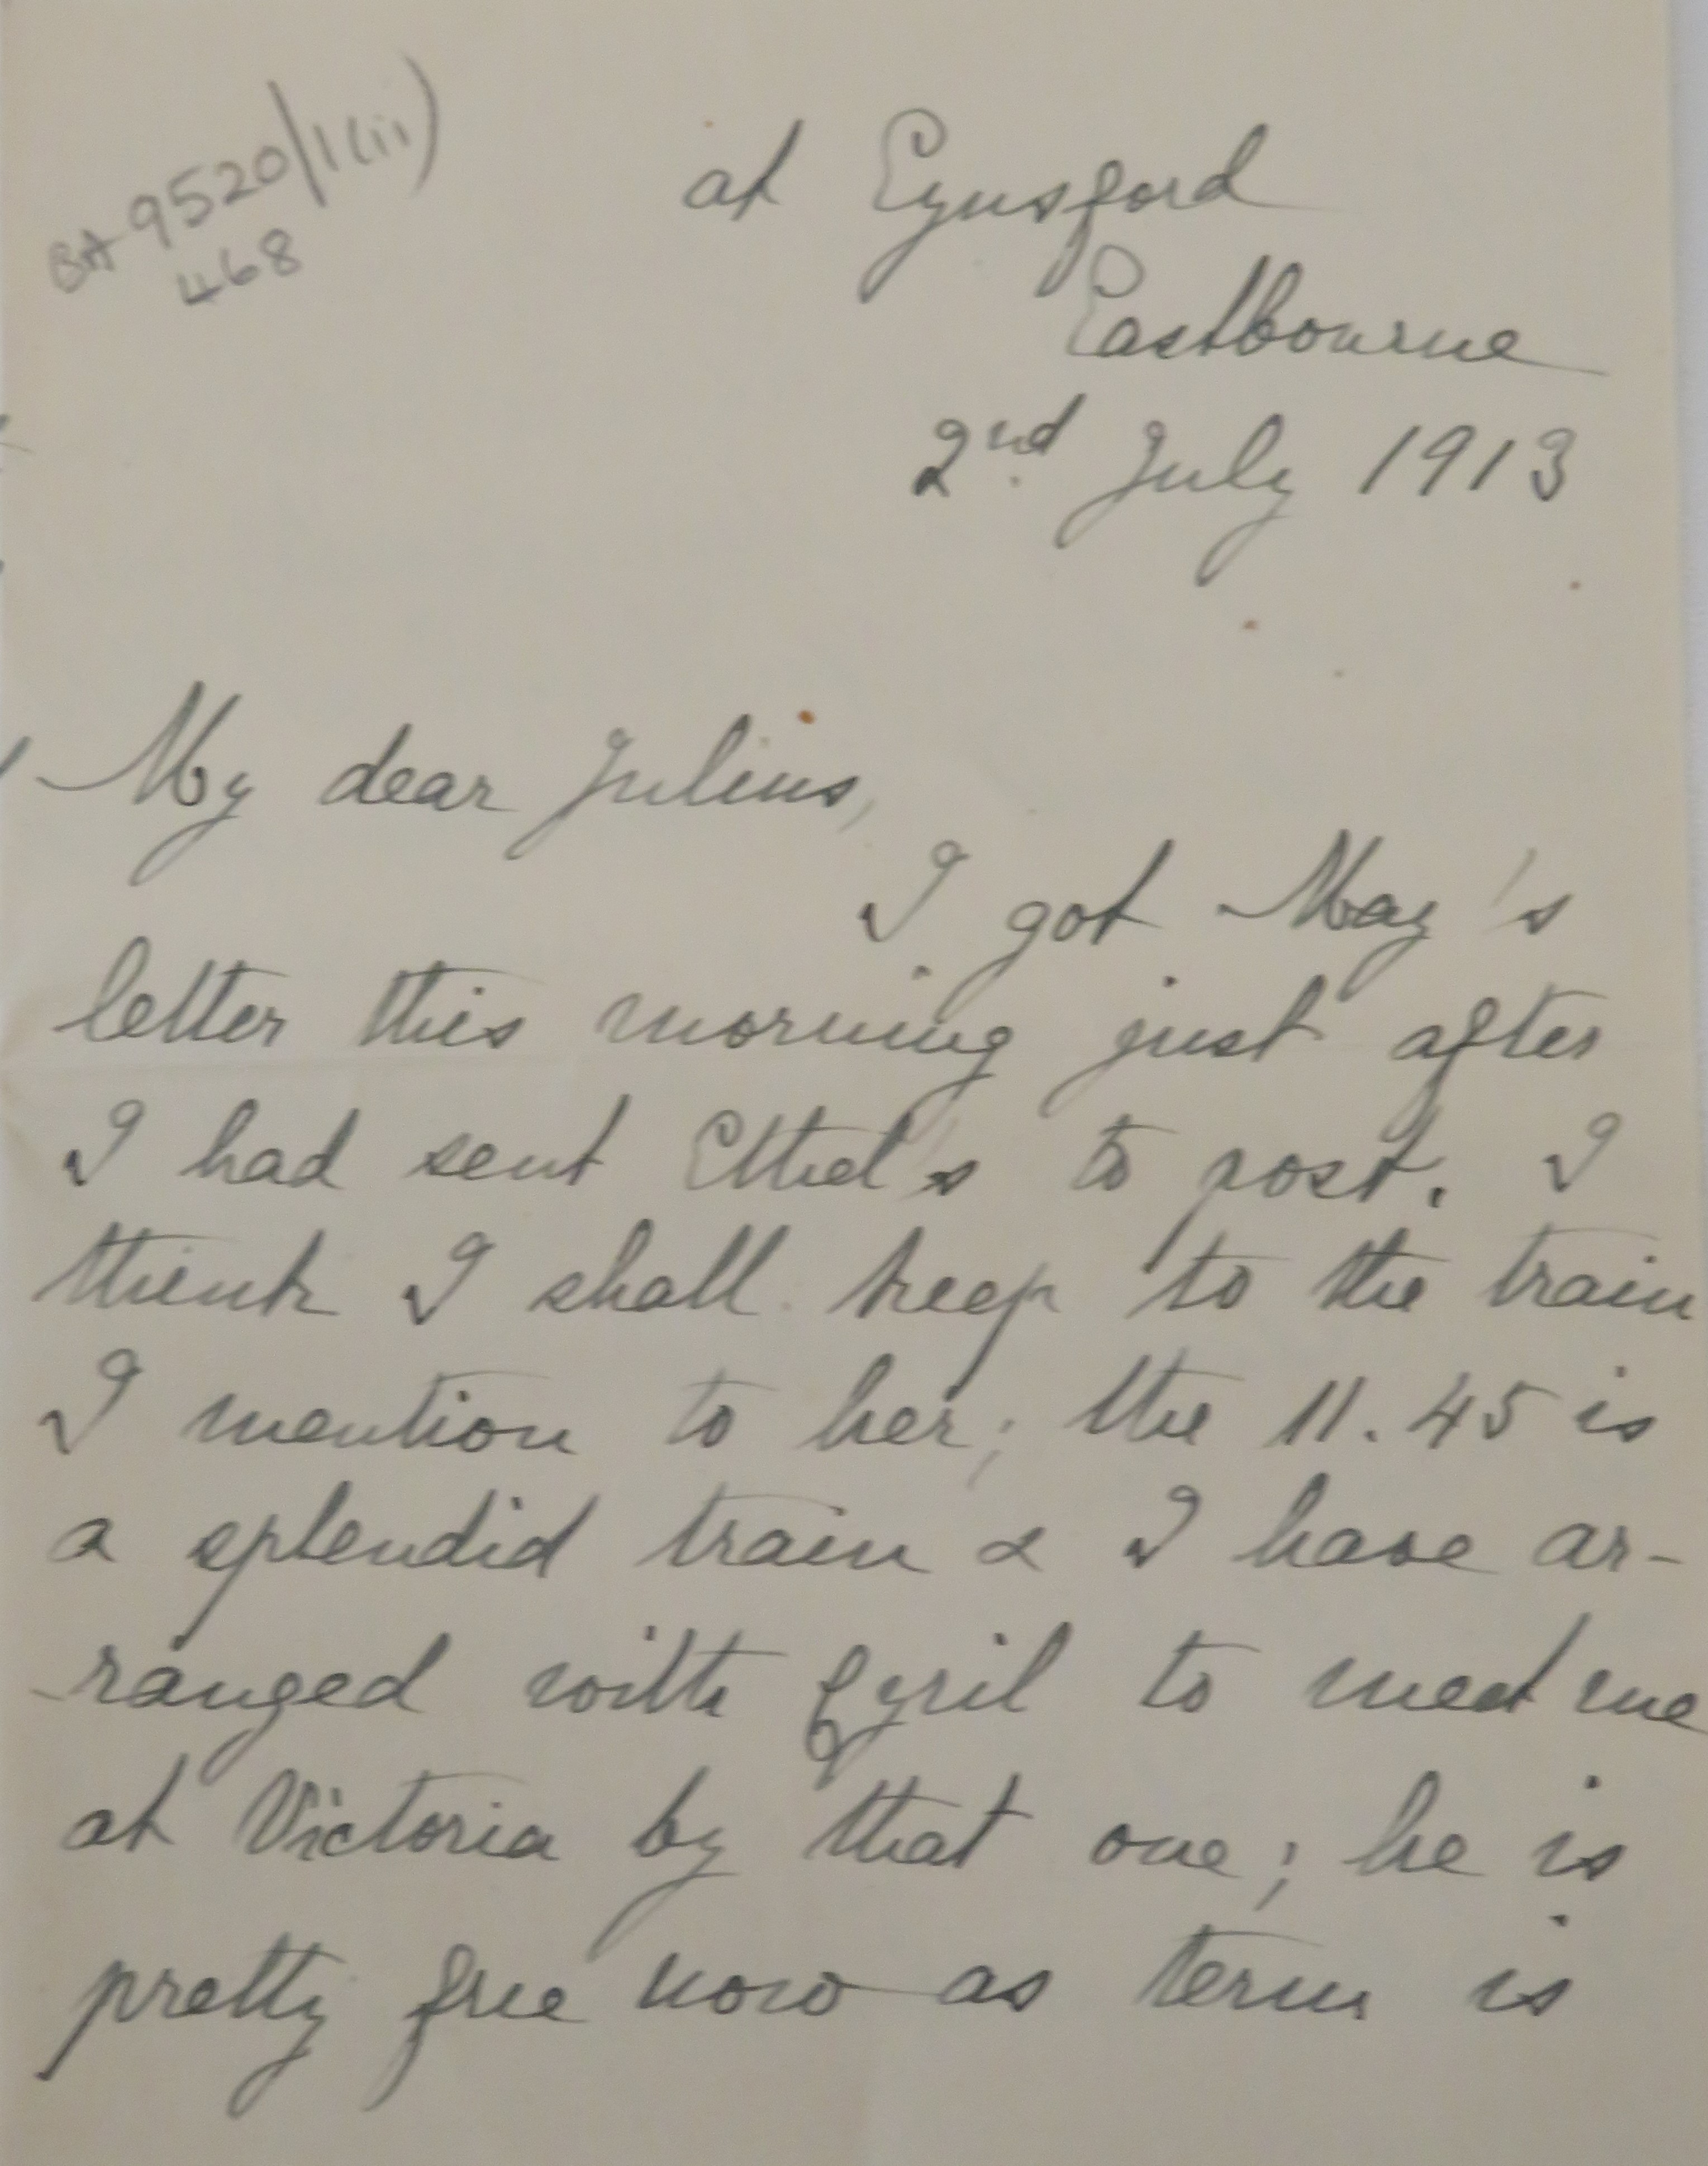 BA 9520/1(ii)
468
at Eynsford
Eastbourne
2nd July 1913
My dear Julius,
I got May's
letter this morning just after
I had sent Ethel's to post. I
think I shall keep to the train
I mention to her; the 11.45 is
a splendid train & I have ar-
-ranged with Cyril to meet me
at Victoria by that one; he is
pretty free now as term is